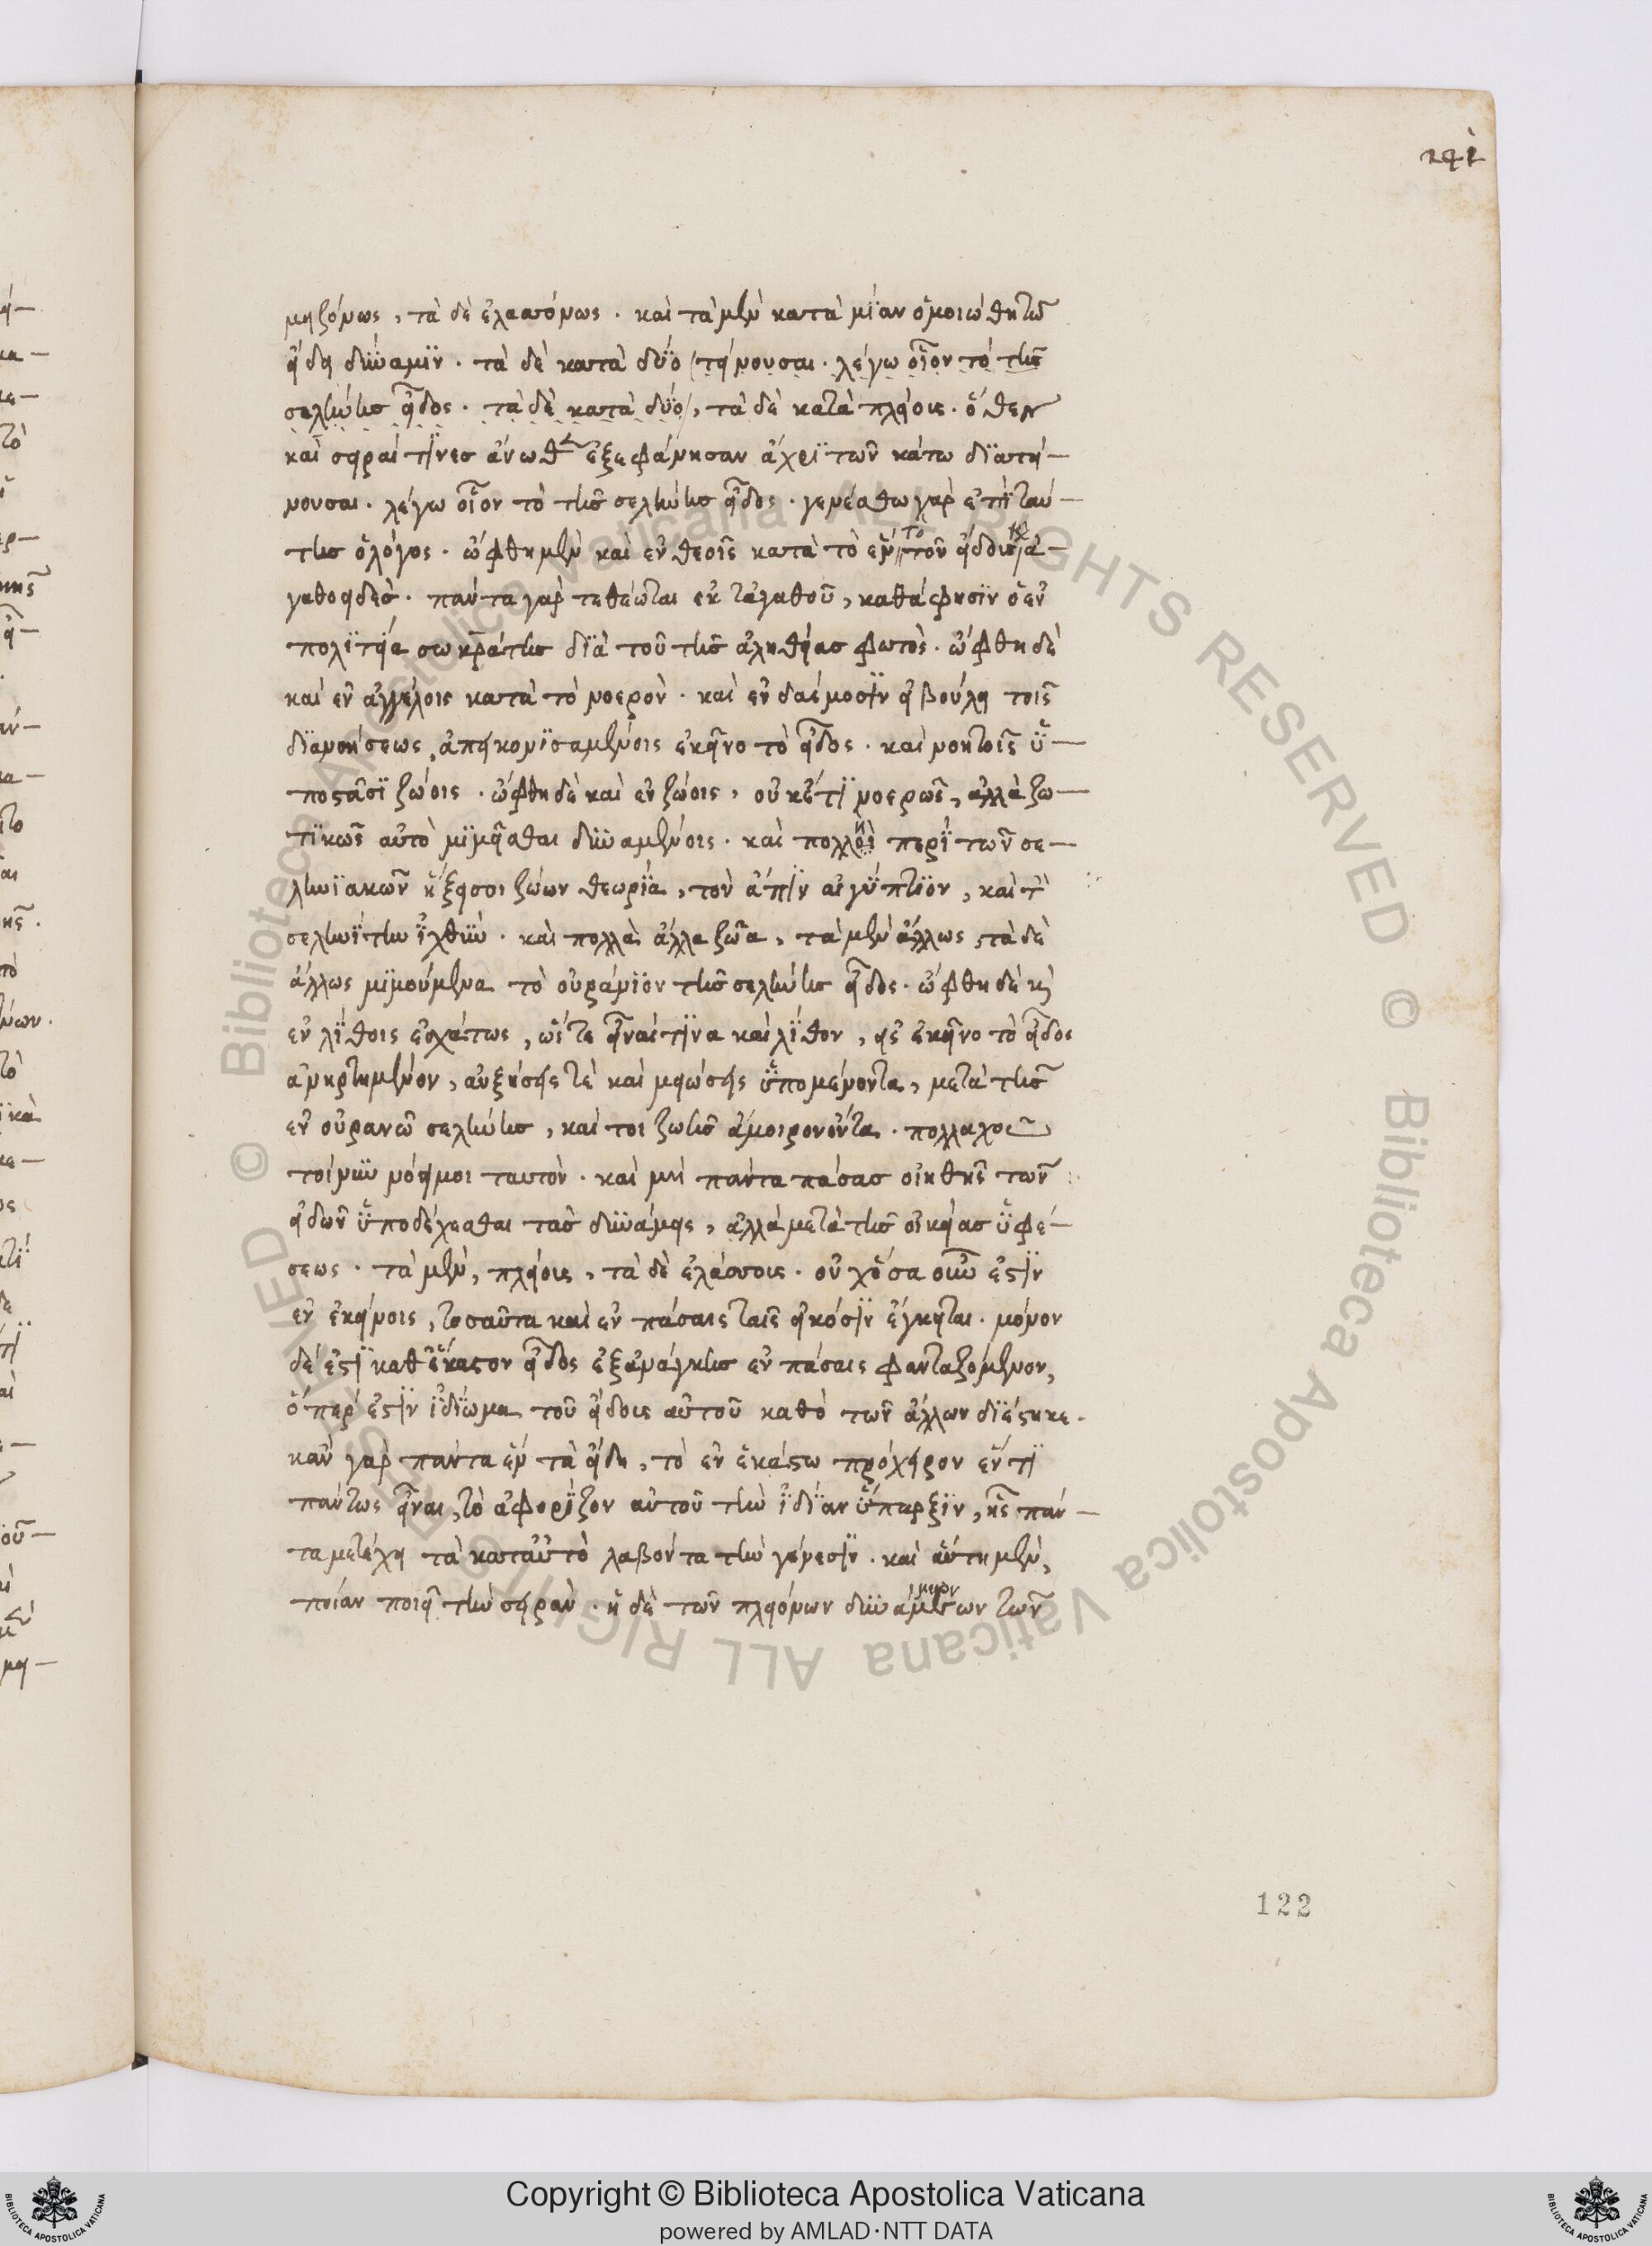 241
μειζόνως, τὰ δὲ ἐλαττόνως. καὶ τὰ μὲν κατὰ μίαν ὁμοιώθη τῶ
εἴδει δύναμιν. τὰ δὲ κατὰ δύο / τείνουσαι. λέγω οἷον τό τῆς
σελήνης εἶδος. τὰ δὲ κατὰ δύο /, τὰ δὲ κατὰ πλείους. ὅθεν
καὶ σειραί τινες ἄνωθεν ἐξεφάνησαν ἄχρι τῶν κάτω διατεί-
νουσαι. λέγω οἷον τὸ τῆς σελήνης εἶδος. γενέσθω γὰρ ἐπὶ ταύ-
της ὁ λόγος. ὤφθη μὲν καὶ ἐν θεοῖς κατὰ τὸ ἓν τὸ τοῦ εἴδους καὶ ἀ-
γαθοειδές. πάντα γὰρ τεθέωται ἐκ τἀγαθοῦ, καθά φησιν ὁ ἐν
πολιτεία σωκράτης διὰ τοῦ τῆς ἀληθείας φωτός. ὤφθη δὲ
καὶ ἐν ἀγγέλοις κατὰ τὸ νοερόν. καὶ ἐν δαίμοσιν εἰ βούλει τοῖς
διανοήσεως ἀπεικονισαμένοις ἐκεῖνο τὸ εἶδος. καὶ νοητοῖς ὑ-
ποστᾶσι ζώοις. ὤφθη δὲ καὶ ἐν ζώοις, οὐκέτι νοερῶς, ἀλλὰ ζω-
τικῶς αὐτὸ μιμεῖσθαι δυναμένοις. καὶ πολλὴ περὶ τῶν σε-
ληνιακῶν ἥξει σοι ζώων θεωρία, τὸν ἄπιν αἰγύπτιον, καὶ τὸν
σεληνίτην ἰχθύν. καὶ πολλὰ ἄλλα ζῶα, τὰ μὲν ἄλλως, τὰ δὲ
ἄλλως μιμούμενα τὸ οὐράνιον τῆς σελήνης εἶδος. ὤφθη δὲ καὶ
ἐν λίθοις ἐσχάτως, ὥστε εἶναί τινα καὶ λίθον, εἰς ἐκεῖνο τὸ εἶδος
ἀνηρτημένον, αὐξήσεις τὲ καὶ μειώσεις ὑπομένοντα, μετὰ τῆς
ἐν οὐρανῶ σελήνης, καί τοι ζωῆς ἄμοιρον ὄντα. πολλαχοῦ
τοίνυν νόει μοι ταυτόν. καὶ μὴ πάντα πάσας οἰηθῆς τῶν
εἰδῶν ὑποδέχεσθαι τὰς δυνάμεις, ἀλλὰ μετὰ τῆς οἰκείας ὑφέ-
σεως. τὰ μὲν, πλείους, τὰ δὲ ἐλάσσους. οὐχ ὅσα οὖν ἐστὶν
ἐν ἐκείνοις, τοσαῦτα καὶ ἐν πάσαις ταῖς εἰκόσιν ἔγκειται. μόνον
δέ ἐστι καθ' ἕκαστον εἶδος ἐξ ἀνάγκης ἐν πάσαις φανταζόμενον,
ὅπερ ἐστὶν ἰδίωμα τοῦ εἴδους αὐτοῦ καθὸ τῶν ἄλλων διέστηκε.
κἂν γὰρ πάντα ἓν τὰ εἴδη, τὸ ἐν ἑκάστω πρόχειρον ἕν τι
πάντως εἶναι, τὸ ἀφορίζον αὐτοῦ τὴν ἰδίαν ὕπαρξιν, ἧς πάν-
τα μετέχει τὰ κατ' αὐτὸ λαβόντα τὴν γένεσιν. καὶ αὕτη μὲν,
ποίαν ποιεῖ τὴν σειράν. ἡ δὲ τῶν πλειόνων δυνάμεων τῶν
122
© Biblioteca Apostolica Vaticana ALL RIGHTS RESERVED © Biblioteca Apostolica Vaticana ALL RIGHTS RESERVED
Copyright © Biblioteca Apostolica Vaticana
powered by AMLAD·NTT DATA